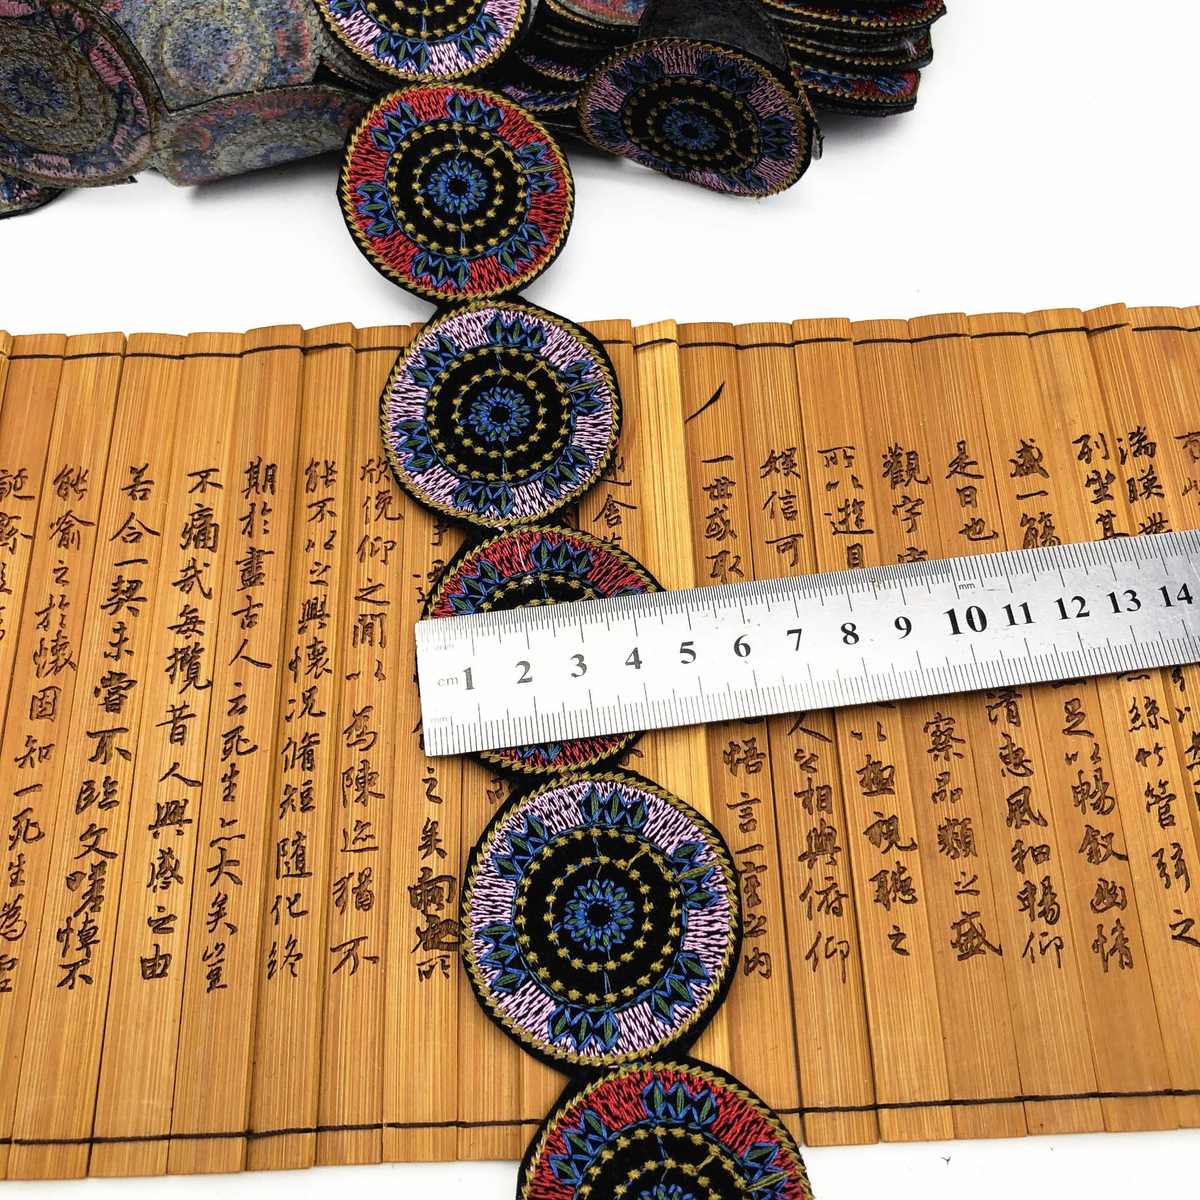 湍暎
列坐其
絲竹管弦之
盛一觴
足以暢叙幽情
是日也
清惠風和暢仰
觀宇
察品類之盛
所以遊目
以極視聽之
娛信可
人之相與俯仰
一世或取
悟言一室之內
之矣向之所
欣俛仰之閒以為陳迹猶不
能不以之興懷況脩短隨化終
期於盡古人云死生亦大矣豈
不痛哉每攬昔人興感之由
若合一契未嘗不臨文嗟悼不
能喻之於懷固知一死生為虛
mm
cm 1 2 3 4 5 6 7 8 9 10 11 12 13 14